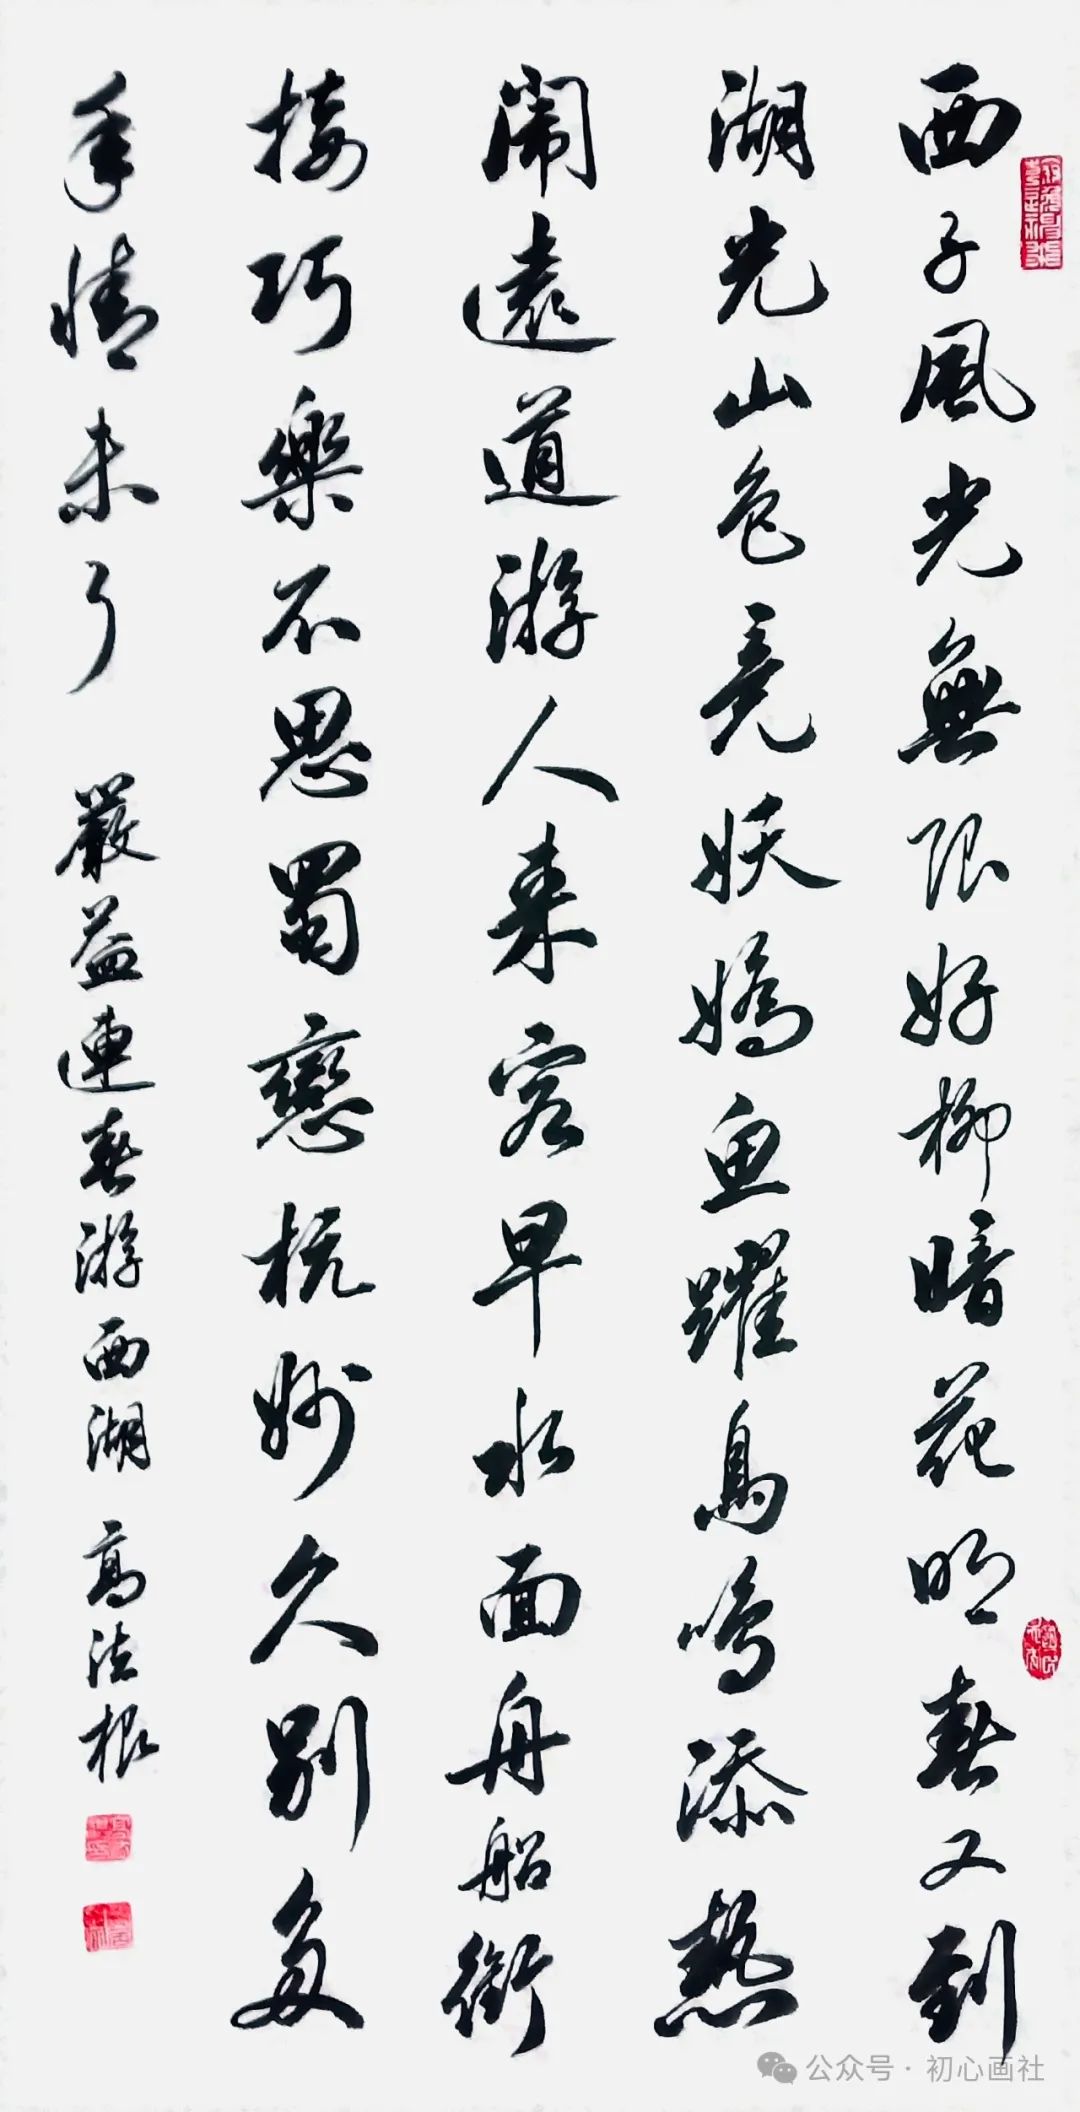 西子風光無限好柳暗花明春又到
湖光山色竞妖嬌鱼躍鳥鳴添熱
闹遠道游人来客早水面舟船銜
接巧樂不思蜀戀杭妙久别多
年情未了
嚴益連春游西湖 高法根
公众号·初心画社